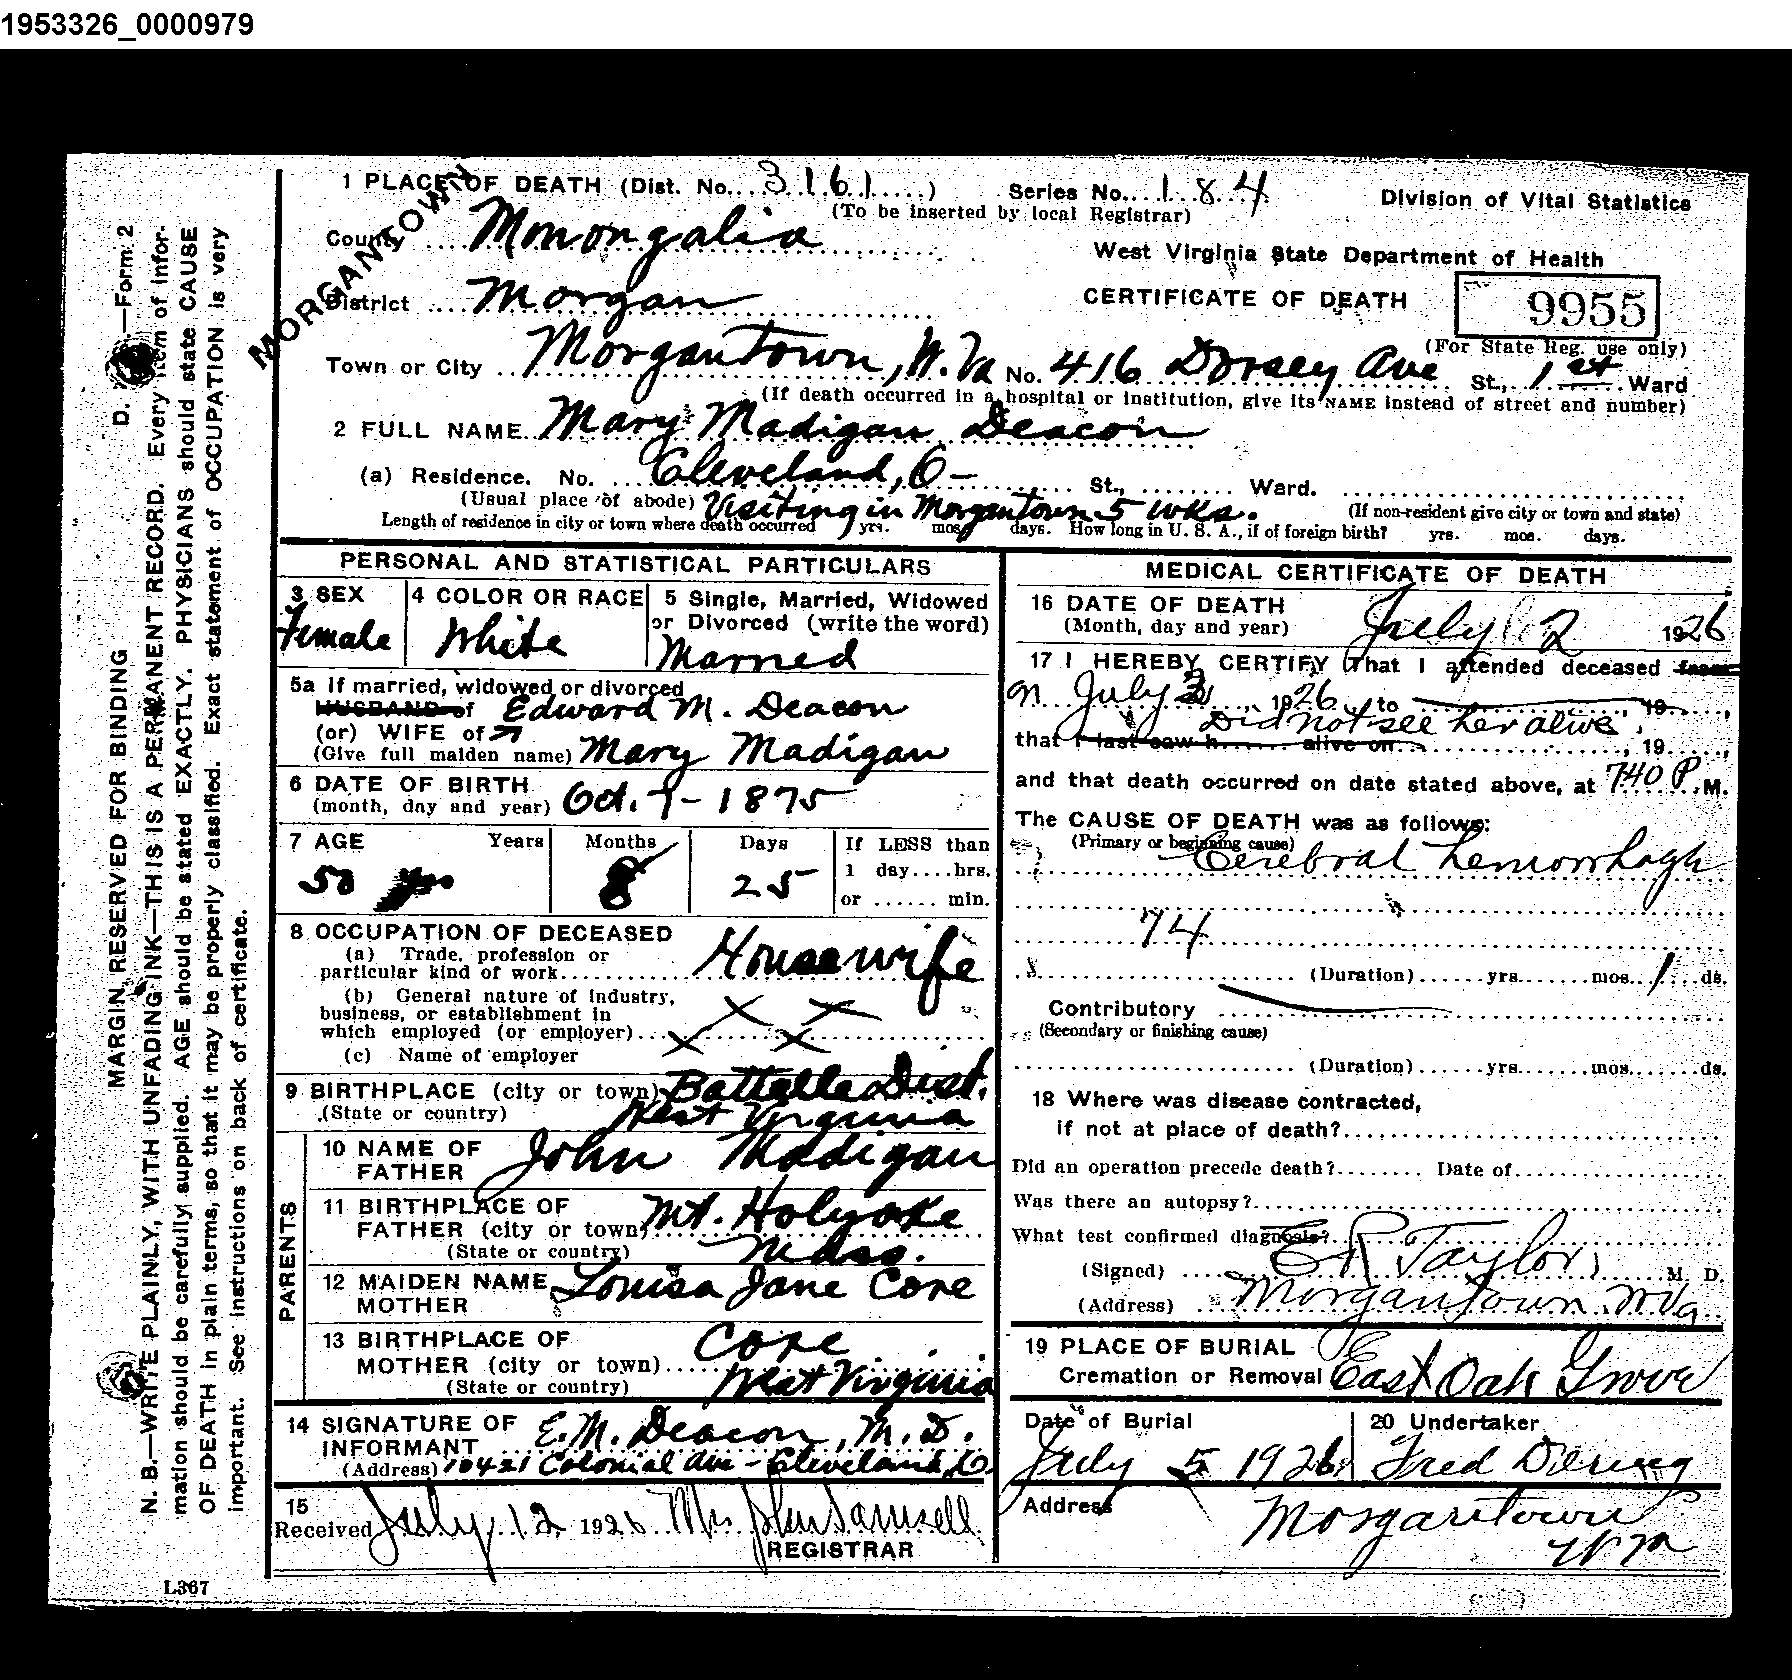 1953326_0000979
1 PLACE OF DEATH (Dist. No. 3161) Series No. 184 Division of Vital Statistics
(To be inserted by local Registrar)
MORGANTOWN
County Monongalia
West Virginia State Department of Health
District Morgan
CERTIFICATE OF DEATH 9955
(For State Reg. use only)
Town or City Morgantown, W. Va No. 416 Dorsey Ave St., 1st Ward
(If death occurred in a hospital or institution, give its NAME instead of street and number)
2 FULL NAME Mary Madigan Deacon
(a) Residence. No. Cleveland, O- St., Ward.
(Usual place of abode) Visiting in Morgantown 5 wks. (If non-resident give city or town and state)
Length of residence in city or town where death occurred yrs. mos. days. How long in U. S. A., if of foreign birth? yrs. mos. days.
PERSONAL AND STATISTICAL PARTICULARS
3 SEX 4 COLOR OR RACE 5 Single, Married, Widowed
or Divorced (write the word)
Female White Married
5a If married, widowed or divorced
HUSBAND of Edward M. Deacon
(or) WIFE of
(Give full maiden name) Mary Madigan
6 DATE OF BIRTH
(month, day and year) Oct. 7- 1875
7 AGE Years Months Days If LESS than
1 day....hrs.
50 8 25
or ...... min.
8 OCCUPATION OF DECEASED
(a) Trade, profession or
particular kind of work Housewife
(b) General nature of industry,
business, or establishment in
which employed (or employer) X X
X X
(c) Name of employer
9 BIRTHPLACE (city or town) Battelle Dist.
(State or country) West Virginia
PARENTS
10 NAME OF
FATHER John Madigan
11 BIRTHPLACE OF
FATHER (city or town) Mt. Holyoke
(State or country) Mass.
12 MAIDEN NAME
MOTHER Louisa Jane Core
13 BIRTHPLACE OF
MOTHER (city or town) Core
(State or country) West Virginia
14 SIGNATURE OF
INFORMANT E. M. Deacon, M. D.
(Address) 10421 Colonial Ave - Cleveland, O.
15
Received July 12 1926 Mrs John Samsell
REGISTRAR
L367
MEDICAL CERTIFICATE OF DEATH
16 DATE OF DEATH
(Month, day and year) July 2 1926
17 I HEREBY CERTIFY that I attended deceased from
on July 2 1926, to 19
Did not see her alive
that I last saw h alive on , 19
and that death occurred on date stated above, at 740 P. M.
The CAUSE OF DEATH was as follows:
(Primary or beginning cause)
Cerebral hemorrhagh
74
(Duration) yrs. mos. 1 ds.
Contributory
(Secondary or finishing cause)
(Duration) yrs. mos. ds.
18 Where was disease contracted,
if not at place of death?
Did an operation precede death? Date of
Was there an autopsy?
What test confirmed diagnosis?
(Signed) E R Taylor, M. D.
(Address) Morgantown W Va
19 PLACE OF BURIAL
Cremation or Removal East Oak Grove
Date of Burial 20 Undertaker
July 5 1926 Fred Dering
Address Morgantown
W Va
D. —Form 2
MARGIN RESERVED FOR BINDING
N. B.—WRITE PLAINLY, WITH UNFADING INK—THIS IS A PERMANENT RECORD. Every item of infor-
mation should be carefully supplied. AGE should be stated EXACTLY. PHYSICIANS should state CAUSE
OF DEATH in plain terms, so that it may be properly classified. Exact statement of OCCUPATION is very
important. See instructions on back of certificate.